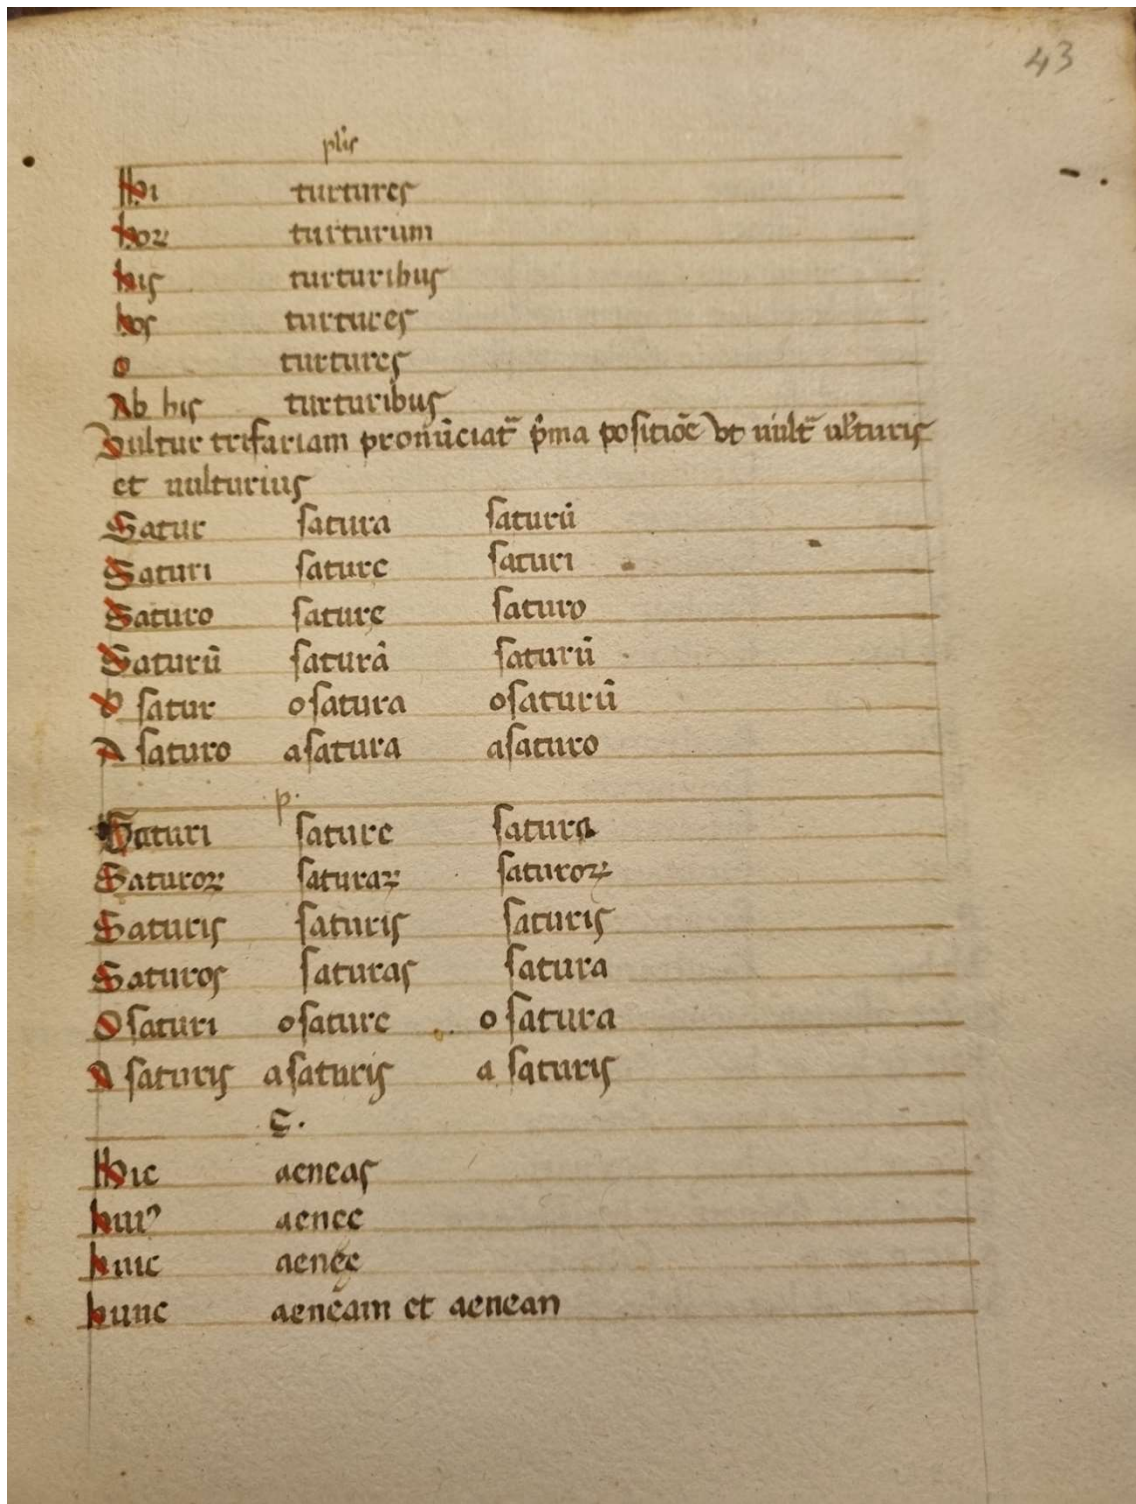 43
pl̃is
Hi turtures
hoꝝ turturum
his turturibus
hos turtures
o turtures
Ab his turturibus
Vultur trifariam pronũciat᷑ p̃ma positiõe vt uult᷑ uł̃turis
et uulturius
Satur satura saturũ
Saturi sature saturi
Saturo saturę saturo
Saturũ saturã saturũ
O satur o satura o saturũ
A saturo a satura a saturo
p.
Saturi sature satura
Saturoꝝ saturaꝝ saturoꝝ
Saturis saturis saturis
Saturos saturas satura
O saturi o sature o satura
A saturis a saturis a saturis
S.
Hic aeneas
huiꝰ aenee
huic aeneę
hunc aeneam et aenean